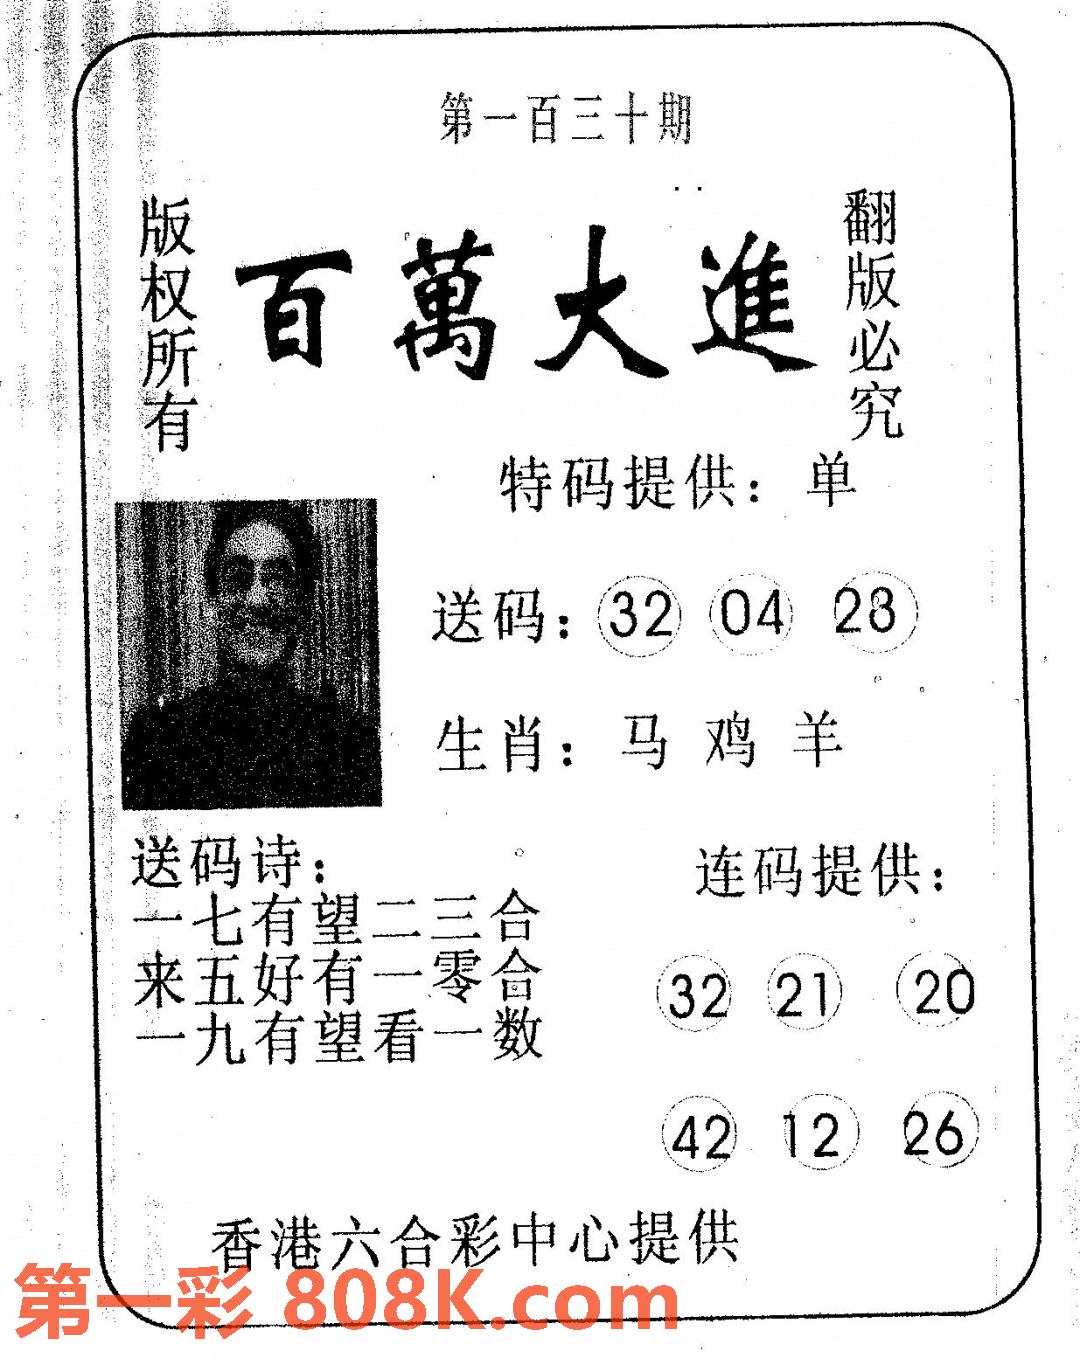 第一百三十期
版权所有
百萬大進
翻版必究
特码提供：单
送码：32 04 28
生肖：马 鸡 羊
送码诗：
一七有望二三合
来五好有一零合
一九有望看一数
连码提供：
32 21 20
42 12 26
香港六合彩中心提供
第一彩 808K.com